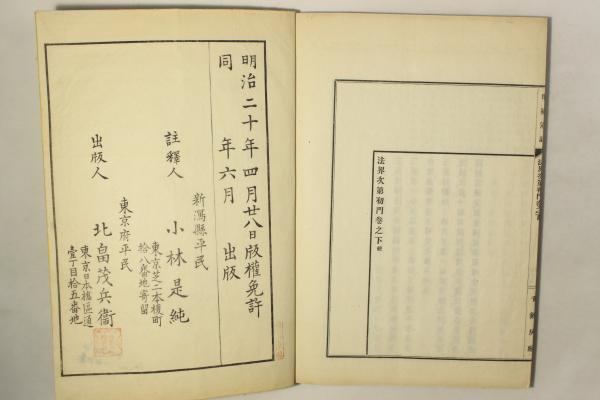 法界次第初門卷之下終
明治二十年四月廿八日版權免許
同 年六月 出版
新潟縣平民
註釋人 小林是純
東京芝二本榎町
拾八番地寄留
東京府平民
出版人 北畠茂兵衞
東京日本橋區通
壹丁目拾五番地